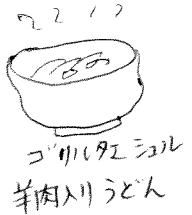 ゴリルタエ シュル
羊肉入りうどん